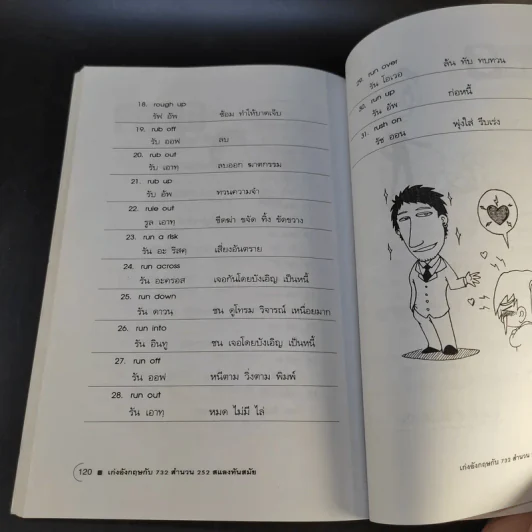 18. rough up
รัฟ อัพ ซ้อม ทำให้บาดเจ็บ
19. rub off
รับ ออฟ ลบ
20. rub out
รับ เอาทฺ ลบออก ฆาตกรรม
21. rub up
รับ อัพ ทวนความจำ
22. rule out
รูล เอาทฺ ขีดฆ่า ขจัด ทิ้ง ขัดขวาง
23. run a risk
รัน อะ ริสคฺ เสี่ยงอันตราย
24. run across
รัน อะครอส เจอกันโดยบังเอิญ เป็นหนี้
25. run down
รัน ดาวนฺ ชน ดูโทรม วิจารณ์ เหนื่อยมาก
26. run into
รัน อินทู ชน เจอโดยบังเอิญ เป็นหนี้
27. run off
รัน ออฟ หนีตาม วิ่งตาม พิมพ์
28. run out
รัน เอาทฺ หมด ไม่มี ไล่
120 เก่งอังกฤษกับ 732 สำนวน 252 สแลงทันสมัย
29. run over
รัน โอเวอ ล้น ทับ ทบทวน
30. run up
รัน อัพ ก่อหนี้
31. rush on
รัช ออน พุ่งใส่ รีบเร่ง
เก่งอังกฤษกับ 732 สำนวน